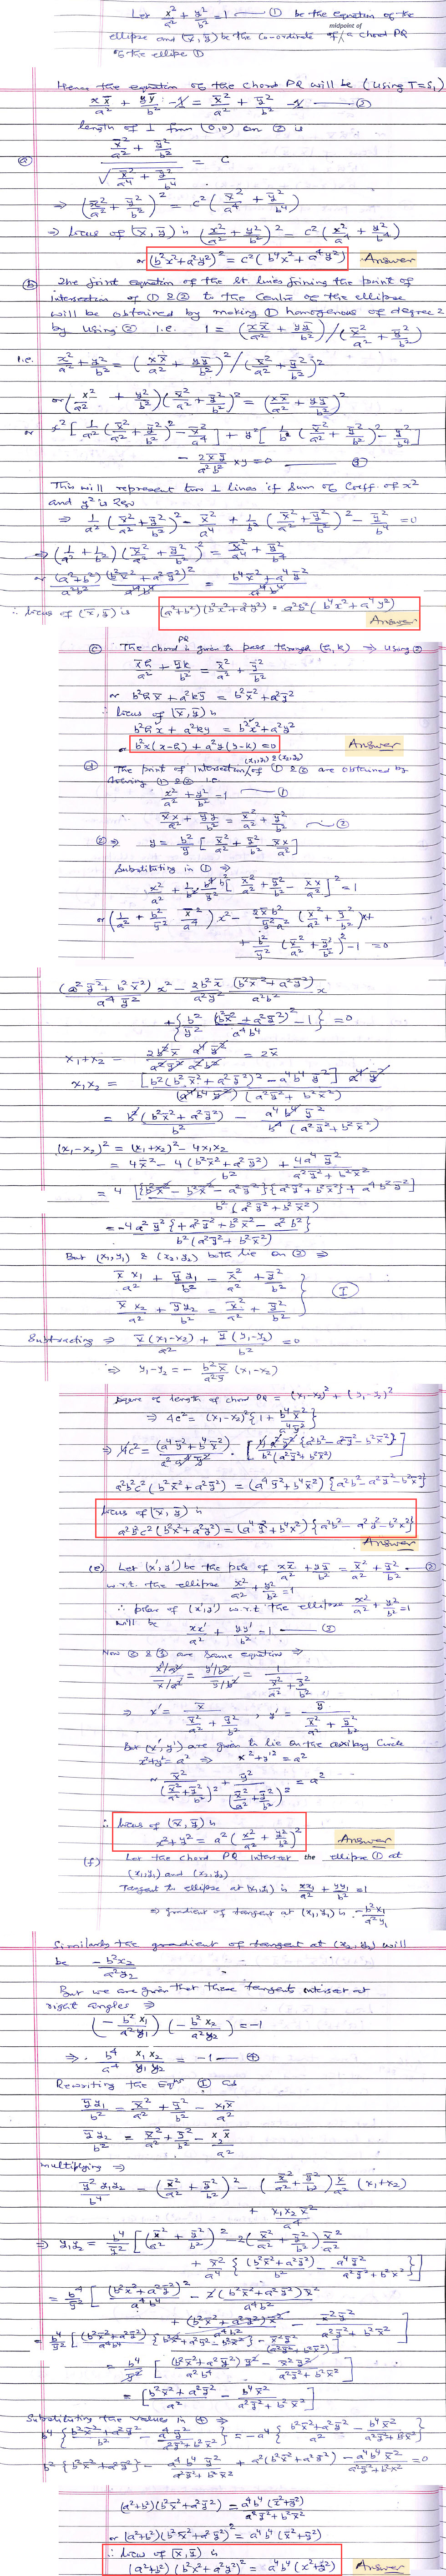 Let x²/a² + y²/b² = 1 — ① be the equation of the
midpoint of
ellipse and (x̄, ȳ) be the co-ordinate of a chord PQ
of the ellipse ①
Hence the equation of the chord PQ will be (using T=S₁)
x x̄/a² + y ȳ/b² - 1 = x̄²/a² + ȳ²/b² - 1 — ②
length of ⊥ from (0,0) on ② is
(a) (x̄²/a² + ȳ²/b²) / √(x̄²/a⁴ + ȳ²/b⁴) = c
⇒ (x̄²/a² + ȳ²/b²)² = c²(x̄²/a⁴ + ȳ²/b⁴)
⇒ locus of (x̄, ȳ) is (x²/a² + y²/b²)² = c²(x²/a⁴ + y²/b⁴)
or (b²x² + a²y²)² = c²(b⁴x² + a⁴y²) Answer
(b) The joint equation of the st lines joining the point of
intersection of ① & ② to the centre of the ellipse
will be obtained by making ① homogenous of degree 2
by using ② i.e. 1 = (x x̄/a² + y ȳ/b²)/(x̄²/a² + ȳ²/b²)
i.e. x²/a² + y²/b² = (x x̄/a² + y ȳ/b²)²/(x̄²/a² + ȳ²/b²)²
or (x²/a² + y²/b²)(x̄²/a² + ȳ²/b²)² = (x x̄/a² + y ȳ/b²)²
or x²[1/a²(x̄²/a² + ȳ²/b²)² - x̄²/a⁴] + y²[1/b²(x̄²/a² + ȳ²/b²)² - ȳ²/b⁴]
- 2x̄ȳ/a²b² xy = 0 — ③
This will represent two ⊥ lines if sum of coeff. of x²
and y² is zero
⇒ 1/a²(x̄²/a² + ȳ²/b²)² - x̄²/a⁴ + 1/b²(x̄²/a² + ȳ²/b²)² - ȳ²/b⁴ = 0
⇒ (1/a² + 1/b²)(x̄²/a² + ȳ²/b²)² = x̄²/a⁴ + ȳ²/b⁴
or (a²+b²)/a²b² (b²x̄² + a²ȳ²)²/a⁴b⁴ = (b⁴x̄² + a⁴ȳ²)/a⁴b⁴
∴ locus of (x̄, ȳ) is (a²+b²)(b²x²+a²y²)² = a²b²(b⁴x² + a⁴y²)
Answer
(c) The chord PQ is given to pass through (h, k) ⇒ using ②
x̄h/a² + ȳk/b² = x̄²/a² + ȳ²/b²
or b²h x̄ + a²k ȳ = b²x̄² + a²ȳ²
∴ locus of (x̄, ȳ) is
b²hx + a²ky = b²x² + a²y²
or b²x(x-h) + a²y(y-k) = 0 Answer
(d) The point of intersection (x₁,y₁) & (x₂,y₂) of ① & ② are obtained by
solving ① & ② i.e.
x²/a² + y²/b² = 1 — ①
x x̄/a² + y ȳ/b² = x̄²/a² + ȳ²/b² — ②
② ⇒ y = b²/ȳ [x̄²/a² + ȳ²/b² - x x̄/a²]
Substituting in ① ⇒
x²/a² + 1/b² b⁴/ȳ² [x̄²/a² + ȳ²/b² - x x̄/a²]² = 1
or (1/a² + b²/ȳ² x̄²/a⁴) x² - 2x̄b²/ȳ²a² (x̄²/a² + ȳ²/b²) x +
+ b²/ȳ² (x̄²/a² + ȳ²/b²)² - 1 = 0
(a²ȳ² + b²x̄²)/a⁴ȳ² x² - 2b²x̄/a²ȳ² (b²x̄² + a²ȳ²)/a²b² x
+ {b²/ȳ² (b²x̄² + a²ȳ²)²/a⁴b⁴ - 1} = 0
x₁+x₂ = 2b²x̄ a⁴ȳ²/a²ȳ² a²b² = 2x̄
x₁x₂ = [b²(b²x̄² + a²ȳ²)² - a⁴b⁴ȳ²] a⁴ȳ² / (a⁴b⁴ȳ²)(a²ȳ² + b²x̄²)
= b²(b²x̄² + a²ȳ²)/b² - a⁴b⁴ȳ²/b⁴(a²ȳ² + b²x̄²)
(x₁-x₂)² = (x₁+x₂)² - 4x₁x₂
= 4x̄² - 4(b²x̄² + a²ȳ²)/b² + 4a⁴ȳ²/(a²ȳ² + b²x̄²)
= 4[{b²x̄² - b²x̄² - a²ȳ²}{a²ȳ² + b²x̄²} + a⁴b²ȳ²]/b²(a²ȳ² + b²x̄²)
= -4a²ȳ²{+a²ȳ² + b²x̄² - a²b²}/b²(a²ȳ² + b²x̄²)
But (x₁,y₁) & (x₂,y₂) both lie on ② ⇒
x̄x₁/a² + ȳy₁/b² = x̄²/a² + ȳ²/b²
x̄x₂/a² + ȳy₂/b² = x̄²/a² + ȳ²/b² } — Ⓘ
Subtracting ⇒ x̄(x₁-x₂)/a² + ȳ(y₁-y₂)/b² = 0
⇒ y₁-y₂ = - b²x̄/a²ȳ (x₁-x₂)
Square of length of chord PQ = (x₁-x₂)² + (y₁-y₂)²
⇒ 4c² = (x₁-x₂)²{1 + b⁴x̄²/a⁴ȳ²}
⇒ 4c² = (a⁴ȳ² + b⁴x̄²)/a⁴ȳ² · [4a²ȳ²{a²b² - a²ȳ² - b²x̄²}/b²(a²ȳ² + b²x̄²)]
a²b²c²(b²x̄² + a²ȳ²) = (a⁴ȳ² + b⁴x̄²){a²b² - a²ȳ² - b²x̄²}
locus of (x̄, ȳ) is
a²b²c²(b²x²+a²y²) = (a⁴y²+b⁴x²){a²b² - a²y² - b²x²}
Answer
(e) Let (x',y') be the pole of x x̄/a² + y ȳ/b² = x̄²/a² + ȳ²/b² — ②
w.r.t. the ellipse x²/a² + y²/b² = 1
∴ polar of (x',y') w.r.t the ellipse x²/a² + y²/b² = 1
will be xx'/a² + yy'/b² = 1 — ③
Now ② & ③ are same equation ⇒
(x'/a²)/(x̄/a²) = (y'/b²)/(ȳ/b²) = 1/(x̄²/a² + ȳ²/b²)
⇒ x' = x̄/(x̄²/a² + ȳ²/b²), y' = ȳ/(x̄²/a² + ȳ²/b²)
But (x',y') are given to lie on the auxiliary circle
x²+y² = a² ⇒ x'²+y'² = a²
∼ x̄²/(x̄²/a² + ȳ²/b²)² + ȳ²/(x̄²/a² + ȳ²/b²)² = a²
∴ locus of (x̄, ȳ) is
x²+y² = a²(x²/a² + y²/b²)² Answer
(f) Let the chord PQ intersect the ellipse ① at
(x₁,y₁) and (x₂,y₂)
Tangent to ellipse at (x₁,y₁) is xx₁/a² + yy₁/b² = 1
⇒ gradient of tangent at (x₁,y₁) is -b²x₁/a²y₁
Similarly the gradient of tangent at (x₂,y₂) will
be -b²x₂/a²y₂
But we are given that these tangents intersect at
right angles ⇒
(-b²x₁/a²y₁)(-b²x₂/a²y₂) = -1
⇒ b⁴/a⁴ x₁x₂/y₁y₂ = -1 — ④
Rewriting the Eqns Ⓘ as
ȳy₁/b² = x̄²/a² + ȳ²/b² - x₁x̄/a²
ȳy₂/b² = x̄²/a² + ȳ²/b² - x₂x̄/a²
multiplying ⇒
ȳ²y₁y₂/b⁴ = (x̄²/a² + ȳ²/b²)² - (x̄²/a² + ȳ²/b²) x̄/a² (x₁+x₂)
+ x₁x₂x̄²/a⁴
⇒ y₁y₂ = b⁴/ȳ² [(x̄²/a² + ȳ²/b²)² - 2(x̄²/a² + ȳ²/b²) x̄²/a²
+ x̄²/a⁴ {(b²x̄² + a²ȳ²)/b² - a⁴ȳ²/(a²ȳ² + b²x̄²)}]
= b⁴/ȳ² [(b²x̄² + a²ȳ²)²/a⁴b⁴ - 2(b²x̄² + a²ȳ²)x̄²/a⁴b²
+ (b²x̄² + a²ȳ²)x̄²/a⁴b² - x̄²ȳ²/(a²ȳ² + b²x̄²)]
= b⁴/ȳ² [(b²x̄² + a²ȳ²)/a⁴b⁴ {b²x̄² + a²ȳ² - b²x̄²} - x̄²ȳ²/(a²ȳ² + b²x̄²)]
= b⁴/ȳ² [(b²x̄² + a²ȳ²)ȳ²/a²b⁴ - x̄²ȳ²/(a²ȳ² + b²x̄²)]
= [(b²x̄² + a²ȳ²)/a² - b⁴x̄²/(a²ȳ² + b²x̄²)]
Substituting the values in ④ ⇒
b⁴{(b²x̄² + a²ȳ²)/b² - a⁴ȳ²/(a²ȳ² + b²x̄²)} = -a⁴{(b²x̄² + a²ȳ²)/a² - b⁴x̄²/(a²ȳ² + b²x̄²)}
b²{b²x̄² + a²ȳ²} - a⁴b⁴ȳ²/(a²ȳ² + b²x̄²) + a²(b²x̄² + a²ȳ²) - a⁴b⁴x̄²/(a²ȳ² + b²x̄²) = 0
(a²+b²)(b²x̄² + a²ȳ²) = a⁴b⁴(x̄²+ȳ²)/(a²ȳ² + b²x̄²)
or (a²+b²)(b²x̄² + a²ȳ²)² = a⁴b⁴(x̄²+ȳ²)
∴ locus of (x̄, ȳ) is
(a²+b²)(b²x² + a²y²)² = a⁴b⁴(x²+y²) Answer